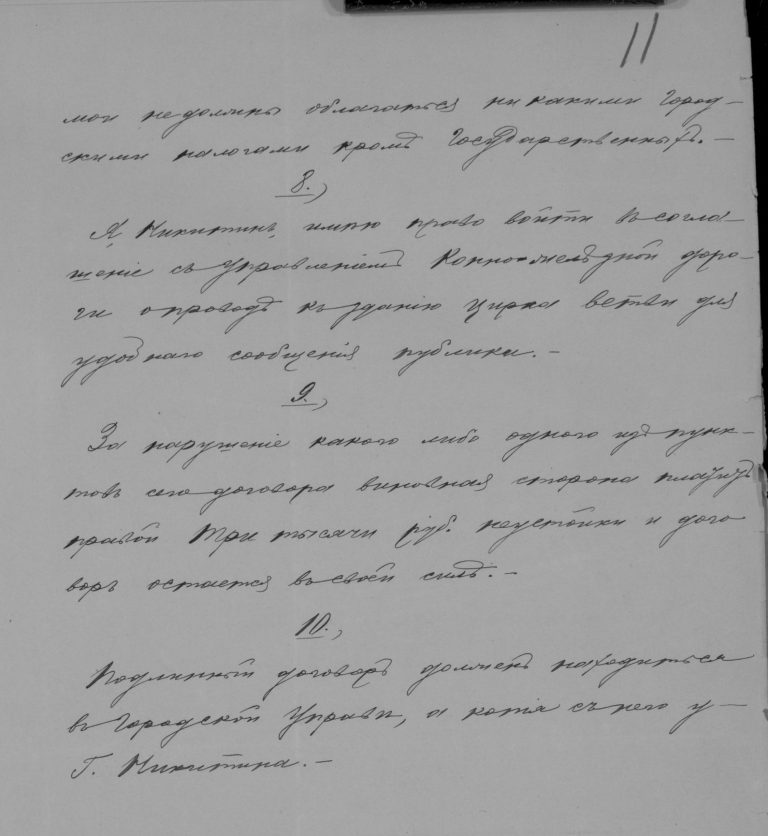 11
мои не должны облагаться ни какими город-
скими налогами кромѣ Государственныхъ.-
8.,
Я, Никитинъ, имѣю право войти въ согла-
шеніе съ Управленіемъ Конно-желѣзной доро-
ги о проводѣ къ зданію цирка ветви для
удобнаго сообщенія публики.-
9.,
За нарушеніе какого либо одного изъ пунк-
товъ сего договора виновная сторона платитъ
правой три тысячи руб. неустойки и дого
воръ остается въ своей силѣ.-
10.,
Подлинный договоръ долженъ находиться
въ Городской Управѣ, а копія съ него у-
Г. Никитина.-